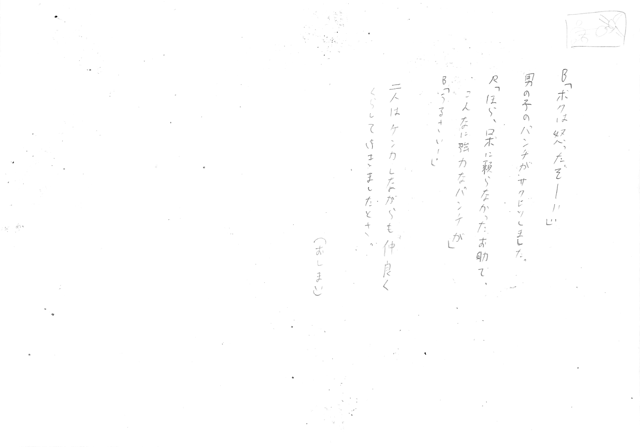 B「ボクは好べったぞーーッ!!」
男の子のパンチがサクレツしました。
R「ほら、ロボに頼らなかったお助で、
こんなに強力なパンチが」
B「うるさいー!」
二人はケンカしながらも、仲良く
くらして行きましたとさ。
(おしまい)